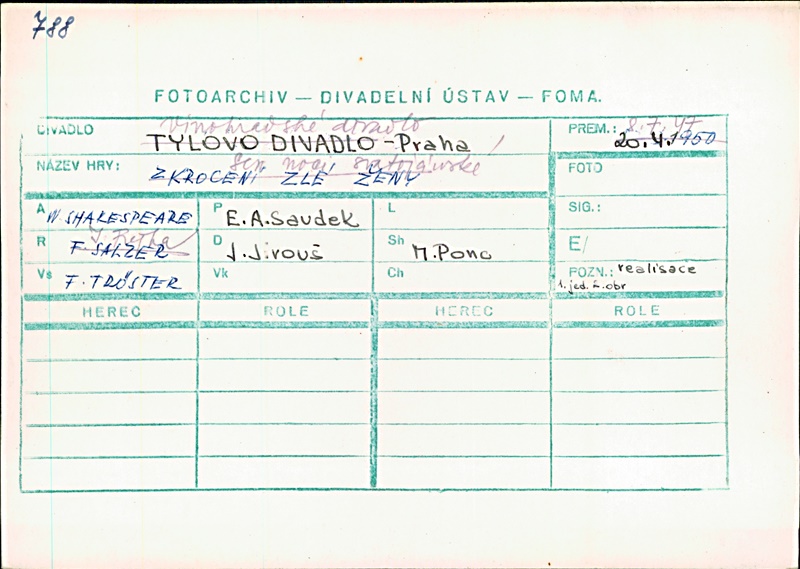 788
FOTOARCHIV — DIVADELNÍ ÚSTAV — FOMA.
DIVADLO Vinohradské divadlo
TYLOVO DIVADLO - Praha
PREM.: 8.7.47
20.4.1950
NÁZEV HRY: Sen noci svatojánské
ZKROCENÍ ZLÉ ŽENY
FOTO
A W. SHAKESPEARE P E.A. Saudek L SIG.:
R F. SALZER D J. Jirouš Sh M. Ponc E/
Vs F. TRÖSTER Vk Ch POZN.: realisace
1. jed. 2. obr
HEREC ROLE HEREC ROLE